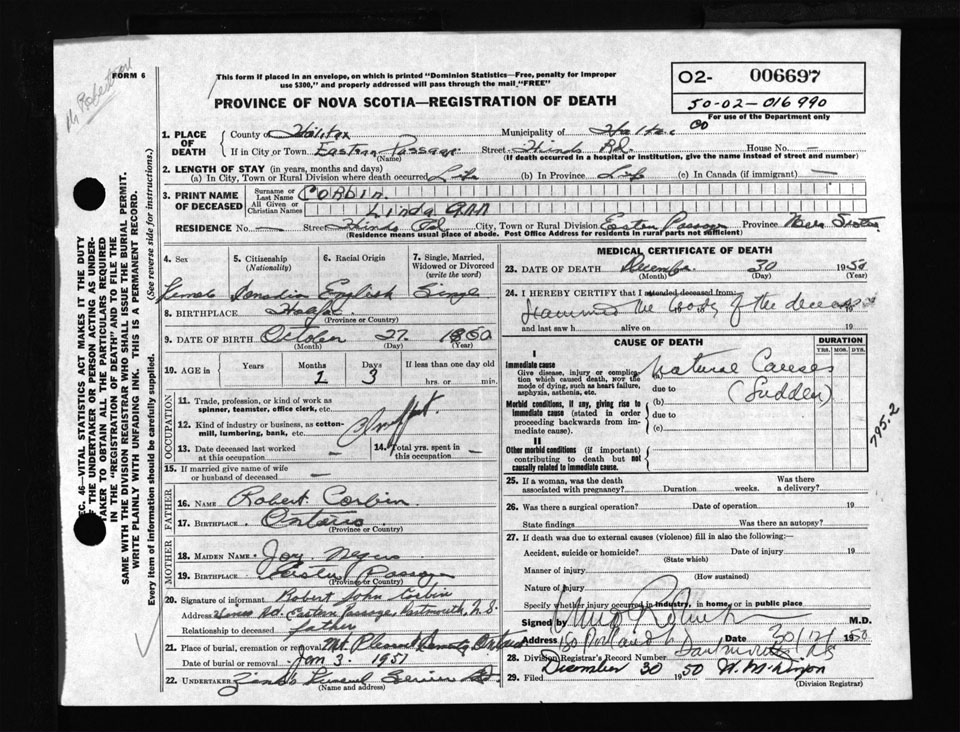 M. Robertson
FORM 6
This form if placed in an envelope, on which is printed "Dominion Statistics—Free, penalty for improper
use $300," and properly addressed will pass through the mail "FREE"
PROVINCE OF NOVA SCOTIA—REGISTRATION OF DEATH
O2- 006697
50-02-016990
For use of the Department only
1. PLACE OF DEATH
County of Halifax Municipality of Halifax Co
If in City or Town Eastern Passage (Name) Street Hinds Rd. House No. —
(If death occurred in a hospital or institution, give the name instead of street and number)
2. LENGTH OF STAY (in years, months and days)
(a) In City, Town or Rural Division where death occurred Life (b) In Province Life (c) In Canada (if immigrant) —
3. PRINT NAME OF DECEASED
Surname or Last Name Corbin
All Given or Christian Names Linda Ann
RESIDENCE No. — Street Hinds Rd City, Town or Rural Division Eastern Passage Province Nova Scotia
(Residence means usual place of abode. Post Office Address for residents in rural parts not sufficient)
4. Sex
5. Citizenship (Nationality)
6. Racial Origin
7. Single, Married, Widowed or Divorced (write the word)
Female Canadian English Single
8. BIRTHPLACE Halifax
(Province or Country)
9. DATE OF BIRTH October 27 1950
(Month) (Day) (Year)
10. AGE in
Years Months Days If less than one day old
2 3 hrs. or min.
OCCUPATION
11. Trade, profession, or kind of work as
spinner, teamster, office clerk, etc.
12. Kind of industry or business, as cotton-
mill, lumbering, bank, etc.
13. Date deceased last worked
at this occupation —
14. Total yrs. spent in
this occupation —
15. If married give name of wife
or husband of deceased —
FATHER
16. NAME Robert Corbin
17. BIRTHPLACE Ontario
(Province or Country)
MOTHER
18. MAIDEN NAME Joy Negus
19. BIRTHPLACE Eastern Passage
(Province or Country)
20. Signature of informant Robert John Corbin
Address Hines Rd. Eastern Passage Dartmouth, N.S.
Relationship to deceased father
21. Place of burial, cremation or removal Mt. Pleasant Ontario
Date of burial or removal Jan 3. 1951
22. UNDERTAKER Zink's Funeral Service
(Name and address)
MEDICAL CERTIFICATE OF DEATH
23. DATE OF DEATH December 30 1950
(Month) (Day) (Year)
24. I HEREBY CERTIFY that I attended deceased from:
Examined the body of the deceased 19
and last saw h alive on 19
CAUSE OF DEATH
DURATION
YRS. MOS. DYS.
I
Immediate cause
Give disease, injury or complica-
tion which caused death, NOT the
mode of dying, such as heart failure,
asphyxia, asthenia, etc.
(a) Natural Causes
due to (Sudden)
Morbid conditions, if any, giving rise to
immediate cause (stated in order
proceeding backwards from im-
mediate cause).
(b)
due to
(c)
795.2
II
Other morbid conditions (if important)
contributing to death but not
causally related to immediate cause.
25. If a woman, was the death
associated with pregnancy? Duration weeks. Was there
a delivery?
26. Was there a surgical operation? Date of operation 19
State findings Was there an autopsy?
27. If death was due to external causes (violence) fill in also the following:—
Accident, suicide or homicide? Date of injury 19
(State which)
Manner of injury
(How sustained)
Nature of Injury
Specify whether injury occurred in industry, in home or in public place
Signed by M.D.
Address 160 Portland St Dartmouth NS Date 30/12/1950
28. Division Registrar's Record Number
29. Filed December 30 1950
(Division Registrar)
SEC. 46—VITAL STATISTICS ACT MAKES IT THE DUTY
OF THE UNDERTAKER OR PERSON ACTING AS UNDER-
TAKER TO OBTAIN ALL THE PARTICULARS REQUIRED
IN THE "REGISTRATION OF DEATH" AND TO FILE THE
SAME WITH THE DIVISION REGISTRAR WHO SHALL ISSUE THE BURIAL PERMIT.
WRITE PLAINLY WITH UNFADING INK. THIS IS A PERMANENT RECORD.
Every item of information should be carefully supplied. (See reverse side for instructions.)